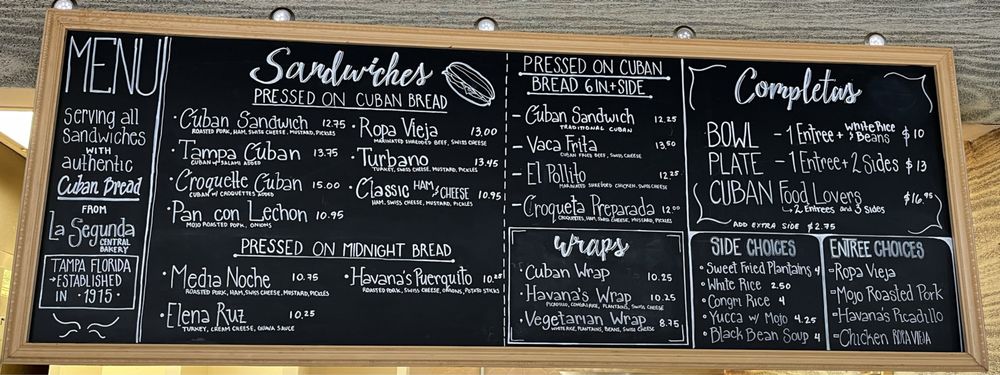 MENU
Serving all
Sandwiches
WITH
authentic
Cuban Bread
FROM
La Segunda
CENTRAL
BAKERY
TAMPA FLORIDA
→ESTABLISHED
IN · 1915 ·
Sandwiches
PRESSED ON CUBAN BREAD
· Cuban Sandwich 12.75
ROASTED PORK, HAM, SWISS CHEESE, MUSTARD, PICKLES
· Tampa Cuban 13.75
CUBAN W/ SALAMI ADDED
· Croquette Cuban 15.00
CUBAN W/ CROQUETTES ADDED
· Pan con Lechon 10.95
MOJO ROASTED PORK, ONIONS
· Ropa Vieja 13.00
MARINATED SHREDDED BEEF, SWISS CHEESE
· Turbano 13.45
TURKEY, SWISS CHEESE, MUSTARD, PICKLES
· Classic HAM & CHEESE 10.95
HAM, SWISS CHEESE, MUSTARD, PICKLES
PRESSED ON MIDNIGHT BREAD
· Media Noche 10.75
ROASTED PORK, HAM, SWISS CHEESE, MUSTARD, PICKLES
· Elena Ruz 10.25
TURKEY, CREAM CHEESE, GUAVA SAUCE
· Havana's Puerquito
ROASTED PORK, SWISS CHEESE, ONIONS, POTATO STICKS
PRESSED ON CUBAN
BREAD 6 IN + SIDE
- Cuban Sandwich 12.25
TRADITIONAL CUBAN
- Vaca Frita 13.50
CUBAN FRIED BEEF, SWISS CHEESE
- El Pollito 12.25
MARINATED SHREDDED CHICKEN, SWISS CHEESE
- Croqueta Preparada 12.00
CROQUETTES, HAM, SWISS CHEESE, MUSTARD, PICKLES
Wraps
· Cuban Wrap 10.25
· Havana's Wrap 10.25
PICADILLO, CONGRI RICE, PLANTAINS, SWISS CHEESE
· Vegetarian Wrap 8.75
WHITE RICE, PLANTAINS, BEANS, SWISS CHEESE
Completas
BOWL - 1 Entree + White Rice & Beans $10
PLATE - 1 Entree + 2 Sides $13
CUBAN Food Lovers $16.95
→ 2 Entrees and 3 Sides
ADD EXTRA SIDE $2.75
SIDE CHOICES
· Sweet Fried Plantains 4
· White Rice 2.50
· Congri Rice 4
· Yucca w/ Mojo 4.25
· Black Bean Soup 4
ENTREE CHOICES
- Ropa Vieja
- Mojo Roasted Pork
- Havana's Picadillo
- Chicken ROPA VIEJA